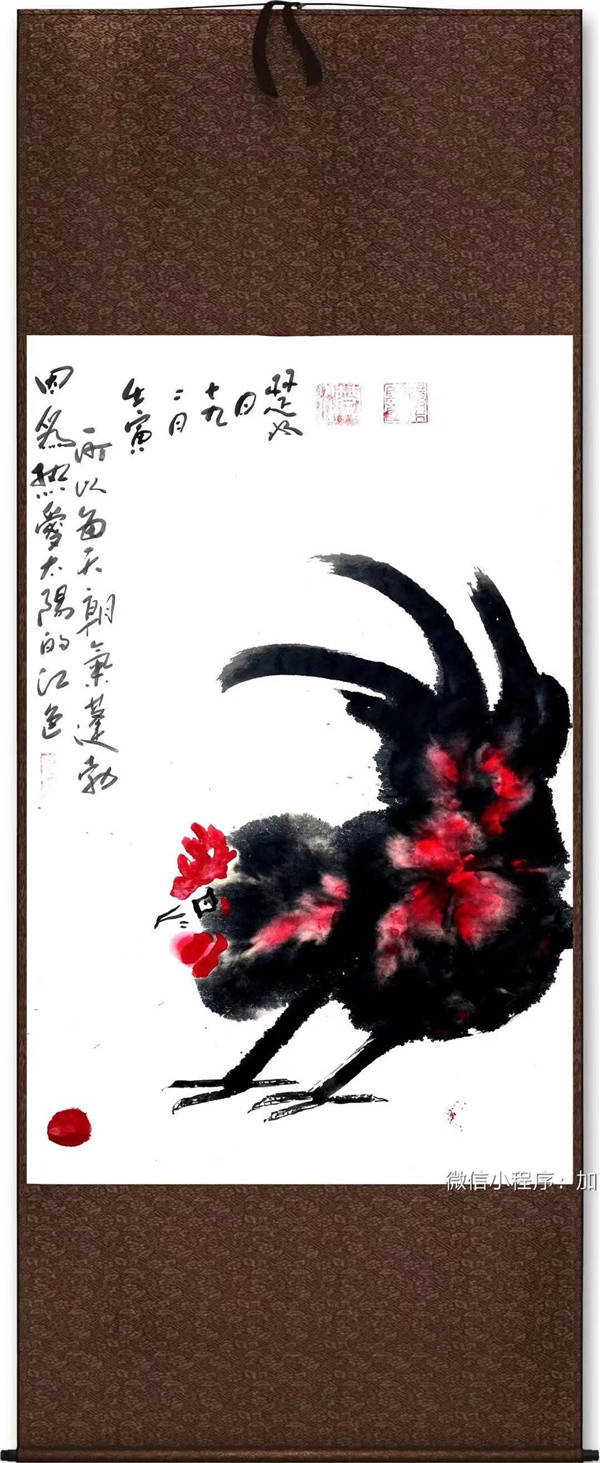 因為热愛太陽的红色
所以每天朝氣蓬勃
壬寅
二月
十九
日
微信小程序：加